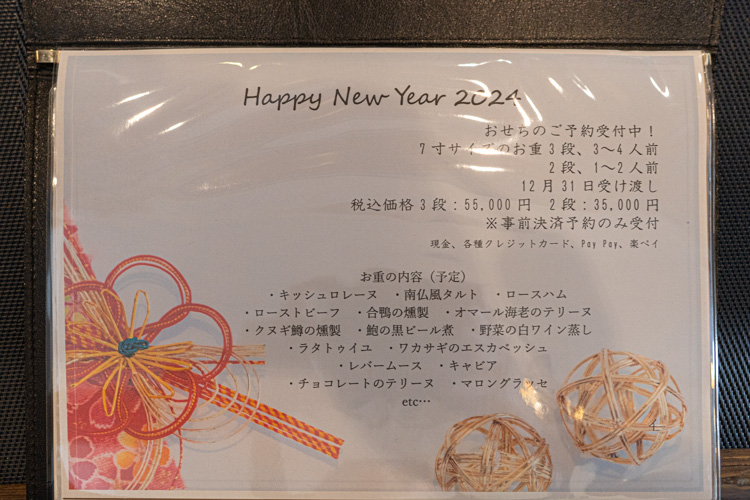 Happy New Year 2024
おせちのご予約受付中！
7寸サイズのお重3段、3～4人前
2段、1～2人前
12月31日受け渡し
税込価格3段：55,000円　2段：35,000円
※事前決済予約のみ受付
現金、各種クレジットカード、Pay Pay、楽ペイ
お重の内容（予定）
・キッシュロレーヌ　・南仏風タルト　・ロースハム
・ローストビーフ　・合鴨の燻製　・オマール海老のテリーヌ
・クヌギ鱒の燻製　・鮑の黒ビール煮　・野菜の白ワイン蒸し
・ラタトゥイユ　・ワカサギのエスカベッシュ
・レバームース　・キャビア
・チョコレートのテリーヌ　・マロングラッセ
etc…